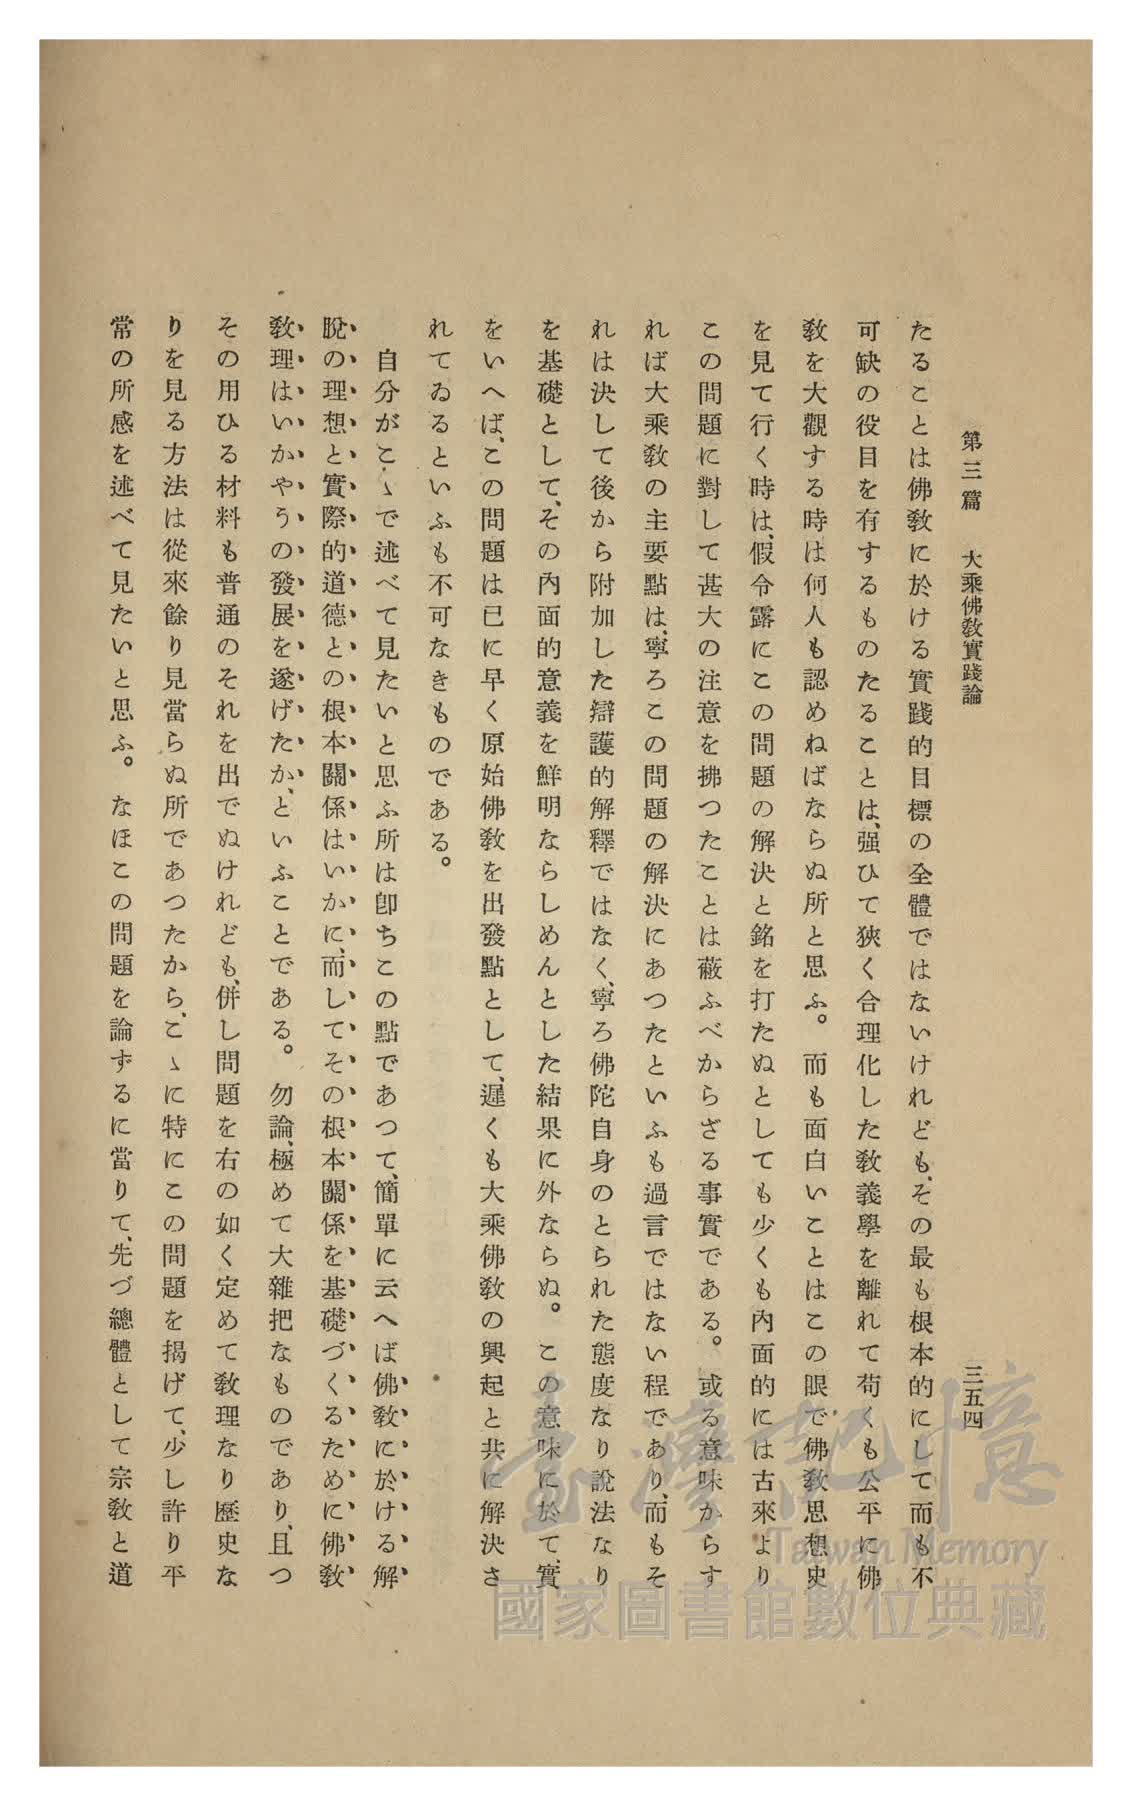 第三篇　大乘佛敎實踐論　三五四
たることは佛敎に於ける實踐的目標の全體ではないけれども、その最も根本的にして而も不
可缺の役目を有するものたることは、强ひて狹く合理化した敎義學を離れて苟くも公平に佛
敎を大觀する時は何人も認めねばならぬ所と思ふ。而も面白いことはこの眼で佛敎思想史
を見て行く時は、假令露にこの問題の解決と銘を打たぬとしても少くも內面的には古來より
この問題に對して甚大の注意を拂つたことは蔽ふべからざる事實である。或る意味からす
れば大乘敎の主要點は、寧ろこの問題の解決にあつたといふも過言ではない程であり、而もそ
れは決して後から附加した辯護的解釋ではなく、寧ろ佛陀自身のとられた態度なり說法なり
を基礎として、その內面的意義を鮮明ならしめんとした結果に外ならぬ。この意味に於て、實
をいへば、この問題は已に早く原始佛敎を出發點として、遲くも大乘佛敎の興起と共に解決さ
れてゐるといふも不可なきものである。
自分がこゝで述べて見たいと思ふ所は卽ちこの點であつて、簡單に云へば佛敎に於ける解
脫の理想と實際的道德との根本關係はいかに、而してその根本關係を基礎づくるために佛敎
敎理はいかやうの發展を遂げたか、といふことである。勿論、極めて大雜把なものであり、且つ
その用ひる材料も普通のそれを出でぬけれども、併し問題を右の如く定めて敎理なり歷史な
りを見る方法は從來餘り見當らぬ所であつたから、こゝに特にこの問題を揭げて、少し許り平
常の所感を述べて見たいと思ふ。なほこの問題を論ずるに當りて、先づ總體として宗敎と道
臺灣記憶
Taiwan Memory
國家圖書館數位典藏